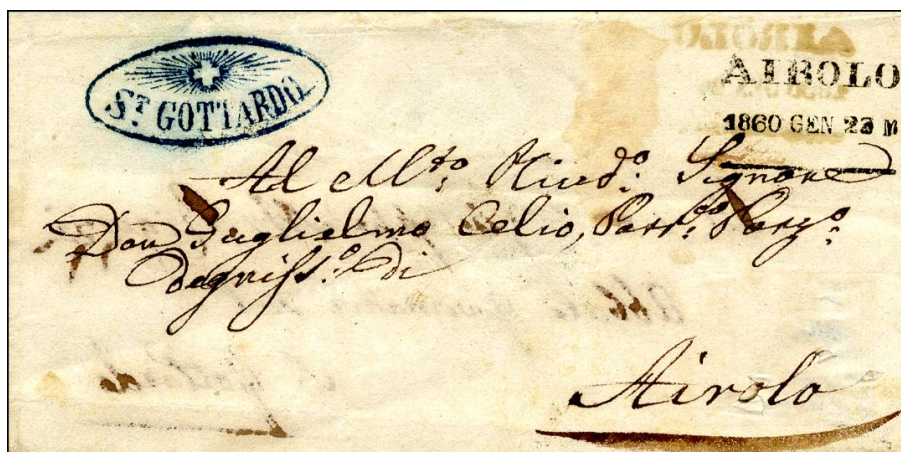 ST GOTTARDO
AIROLO
1860 GEN 23 M
Al M.to Rivd.o Signore
Don Guglielmo Celio, Parr.o
degniss.o di
Airolo